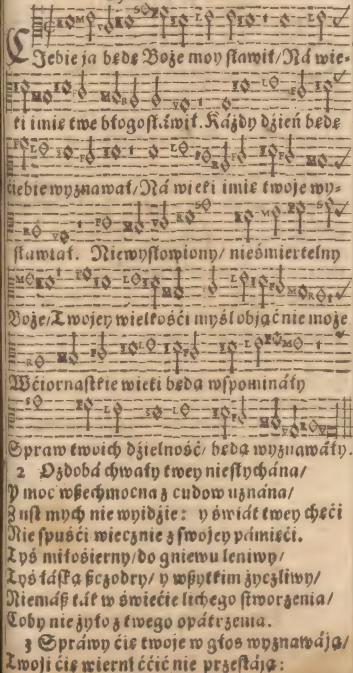 CJebie ja będę Boże moy sławił/Ná wie-
ki imię twe błogosławił. Każdy dzień będę
ciebie wyznawał/Ná wieki imię twoje wy-
sławiał. Niewysłowiony/ nieśmiertelny
Boże/Twojey wielkości myśl objąć nie może
Wściornastkie wieki będą wspomináły
Spraw twoich dzielność/ będą wyznawáły.
2 Ozdobá chwały twey niesłychána/
Y moc wßechmocna z cudow uznána/
Z ust mych nie wyidźie: y świát twey chęći
Nie spuśći wiecznie z swojey pámięći.
Tyś miłośierny/do gniewu leniwy/
Tyś łáską ßczodry/ y wßytkim życzliwy/
Niemáß ták w świećie lichego stworzenia/
Coby nie żyło z twego opátrzenia.
3 Spráwy ćię twoje w głos wyznawáją/
Twoji ćię wierni ććić nie przestáją: